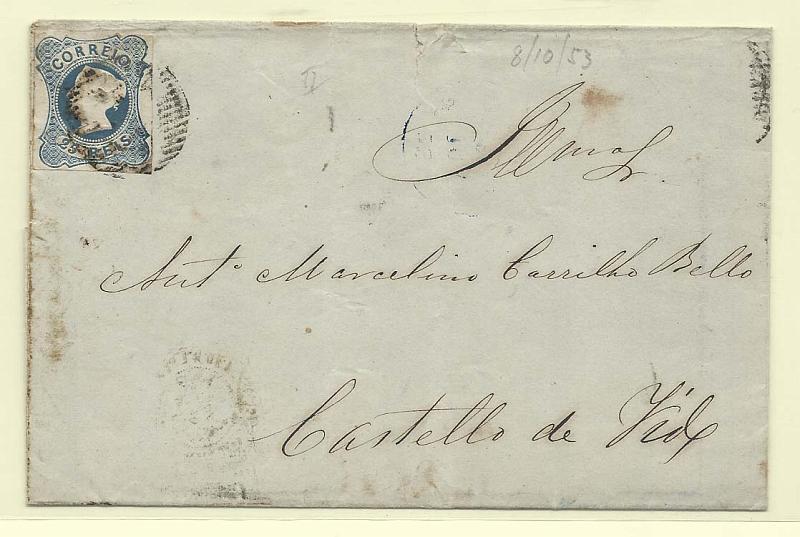 CORREIO
25 REIS
8/10/53
II
Illmo Sr.
Anto Marcelino Carrilho Bello
Castello de Vide